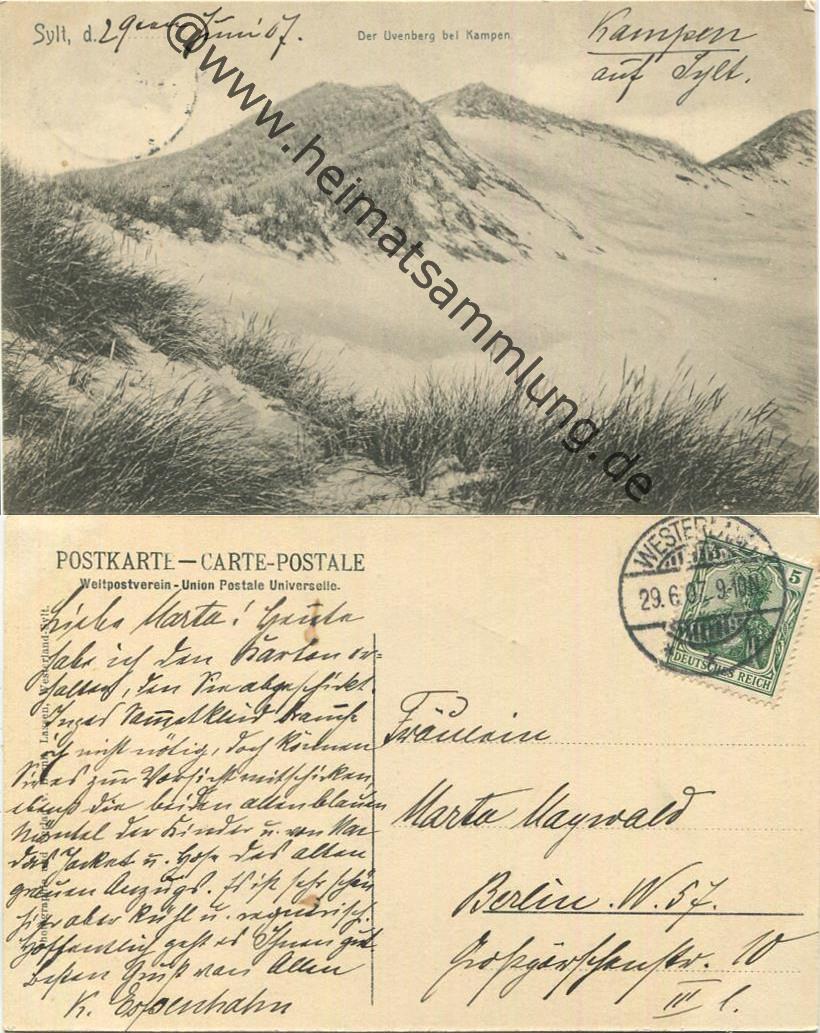 Sylt, d. 29ten Juni 07.
Der Uvenberg bei Kampen
Kampen
auf Sylt.
@www.heimatsammlung.de
POSTKARTE — CARTE-POSTALE
Weltpostverein - Union Postale Universelle.
WESTERLAND
29.6.07. 9-10N
5
DEUTSCHES REICH
Liebe Marta! Heute
habe ich den Karton er=
halten, den Sie abgeschickt.
Inges Samtkleid brauche
ich nicht nötig, doch können
Sie es zur Vorsicht mitschicken,
ebenso die beiden alten blauen
Mäntel der Kinder u. von
das Jacket u. Hose des alten
grauen Anzugs. Es ist sehr schön
hier aber kühl u. regnerisch.
Hoffentlich geht es Ihnen gut
Besten Gruß von Allen
K. Espenhahn
Fräulein
Marta Maywald
Berlin. W. 57.
Großgörschenstr. 10
III l.
Lassen, Westerland-Sylt.